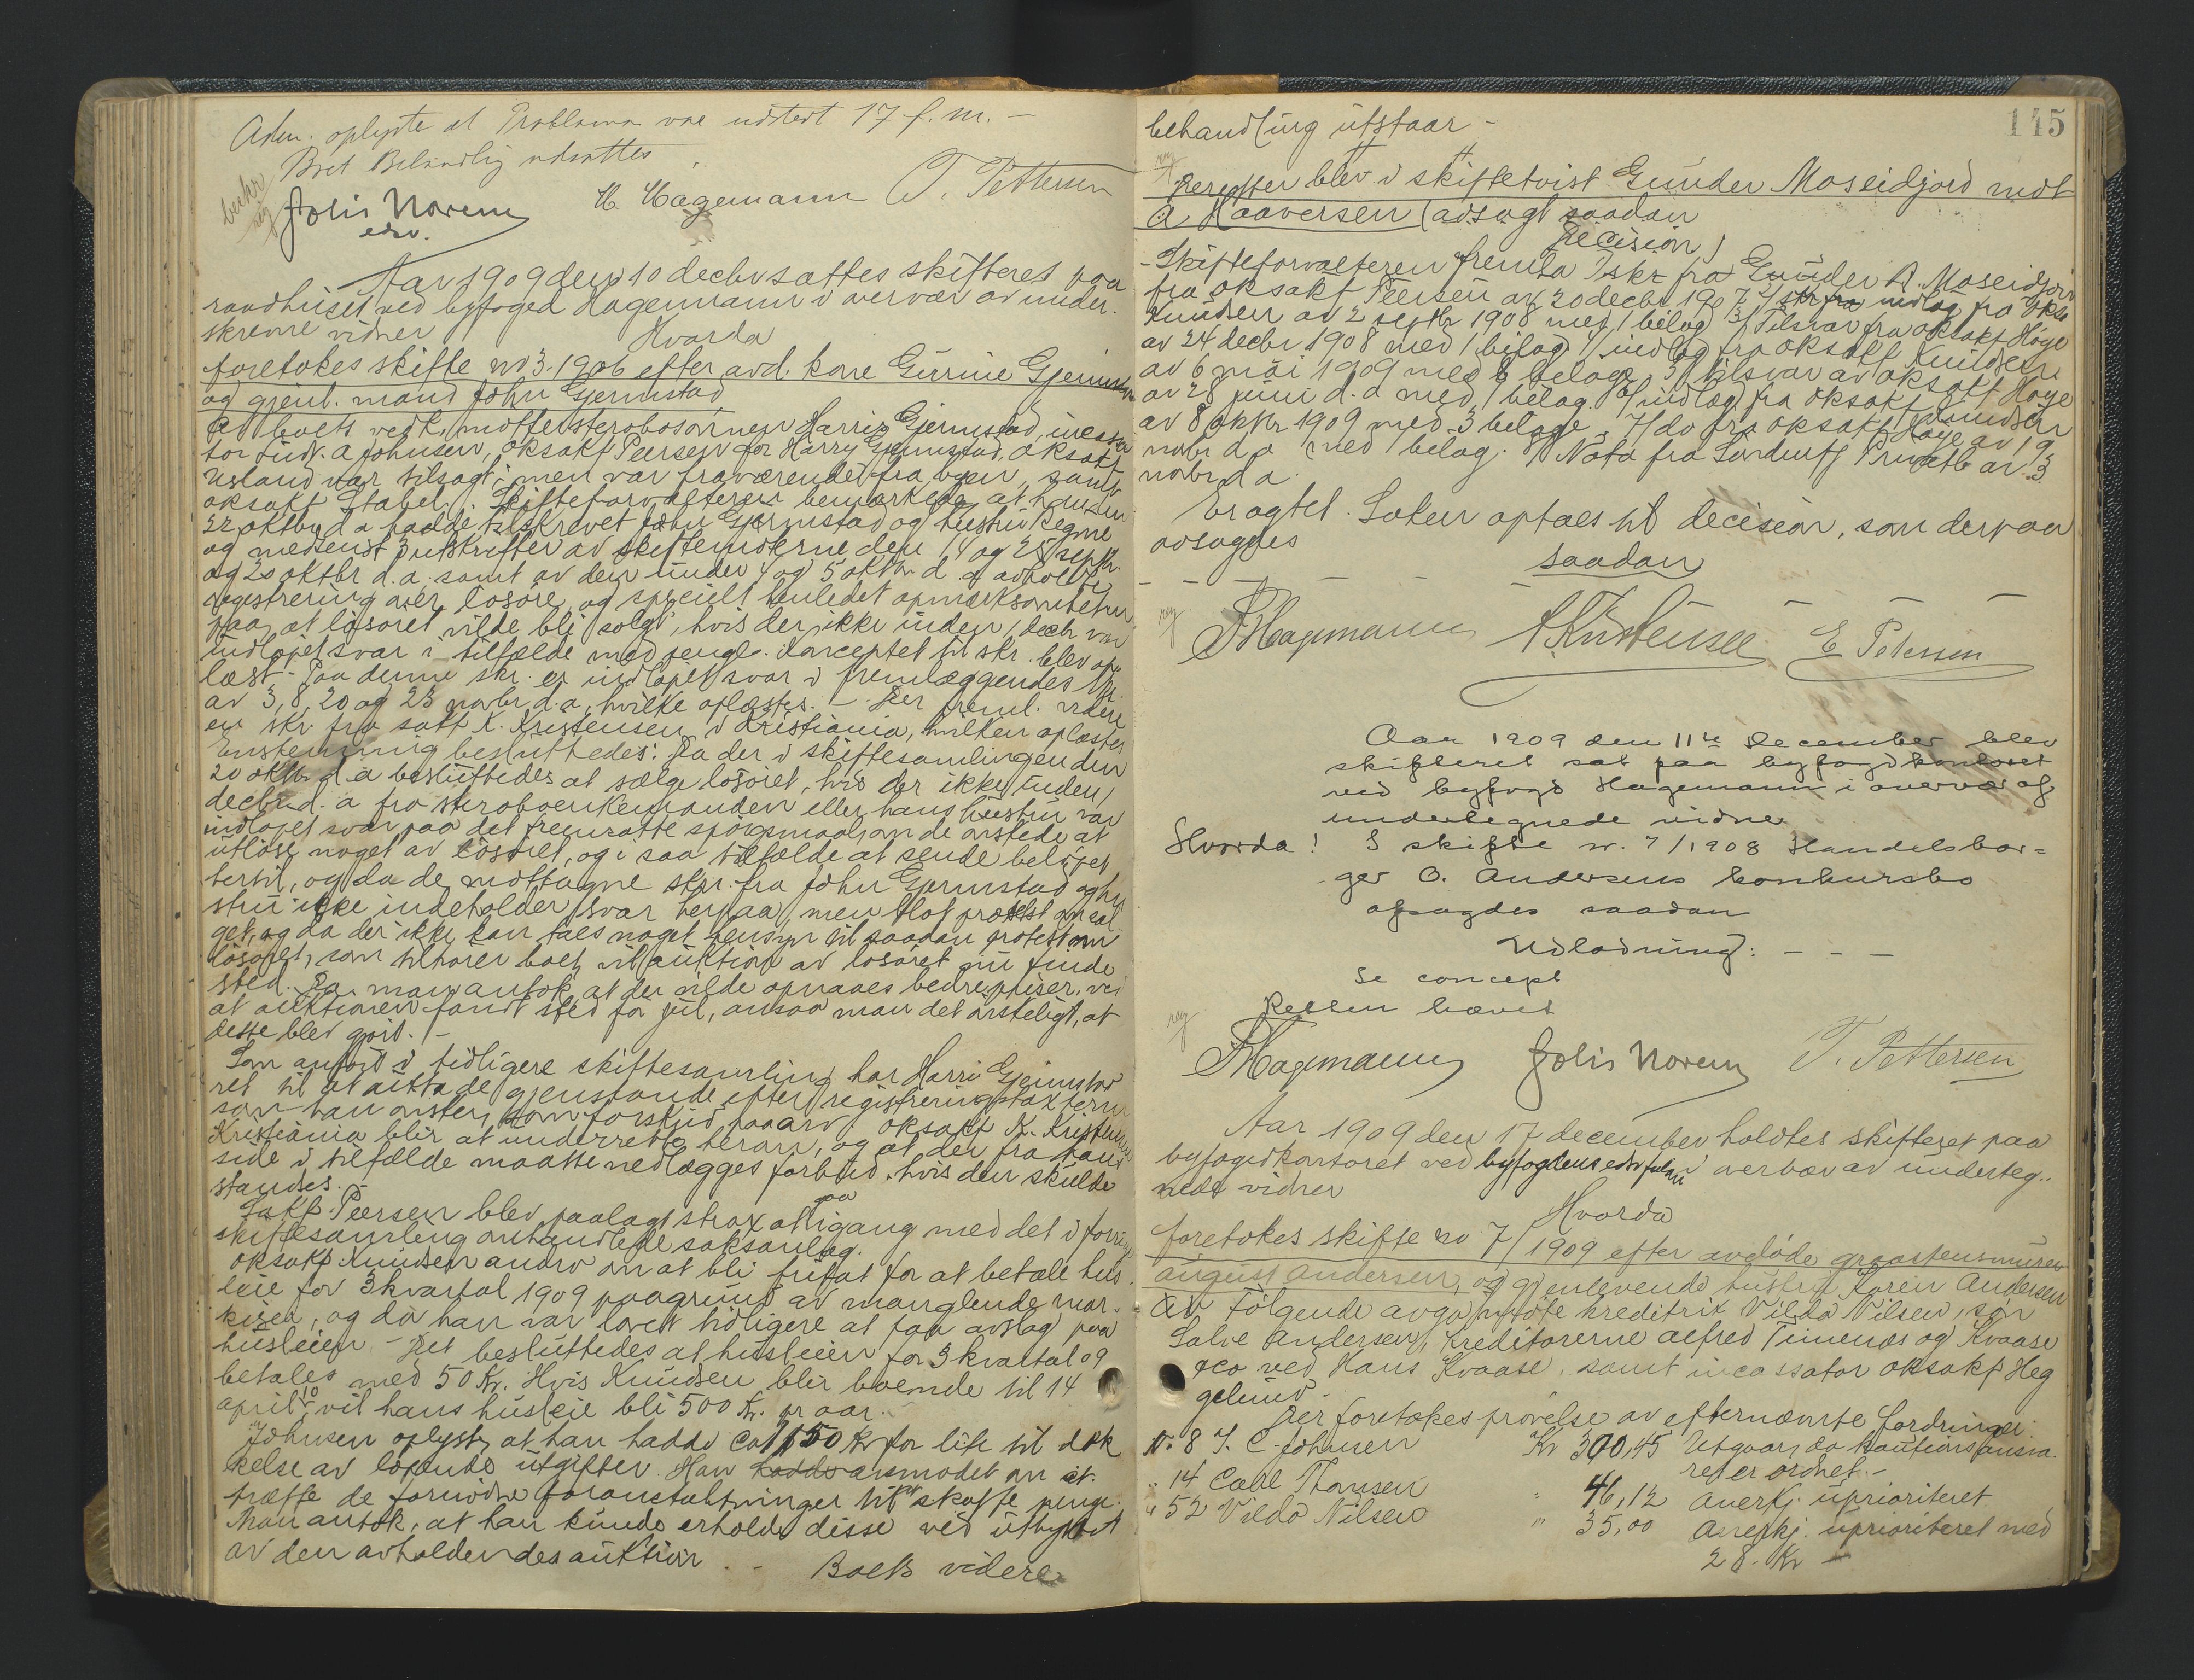 Adm. oplyste at Proklama var udstedt 17 f. m. –
Boets Behandling udsattes.
bukr
reg
Jolis Norem H. Hagemann T. Pettersen
edsv.
Aar 1909 den 10 decbr sattes skifteret paa
raadhuset ved byfoged Hagemann i overvær av under-
skrevne vidner
Hvorda
foretokes skifte no 3. 1906 efter avd. kone Gurine Gjermstad
og gjenl. mand John Gjermstad
At boets vedk. møtte sterbosønnen Harris Gjermstad, incassa
tor Ludv. A Johnsen, oksakf Peersen for Harry Gjermstad. Oksakf
Usland var tilsagt, men var fraværende fra byen, samt
oksakf Stabel. Skifteforvalteren bemerkede, at han den
22 oktbr d a hadde tilskrevet John Gjermstad og hustru Regine
og medsendt utskrifter av skiftemøterne den 14 og 25 septbr.
og 20 oktbr d. a. samt av den under 4 og 5 oktbr. d. a avholdte
registrering over løsøre, og specielt henledet opmerksomheten
paa, at løsøret vilde bli solgt, hvis der ikke inden 1 decbr var
indløpet svar i tilfælde med penge. Konceptet til skr. blev op-
læst. – Paa denne skr. er indløpet svar i fremlæggendes skr.
av 3, 8, 20 og 23 novbr d. a, hvilke oplæstes. – Der freml. videre
en skr. fra sakf K. Kristensen i Kristiania, hvilken oplæstes
Enstemmig besluttedes: Da der i skiftesamlingen den
20 oktbr d. a besluttedes at sælge løsøret, hvis der ikke inden 1
decbr d. a fra sterboenkemanden eller hans hustru var
indløpet svar paa det fremsatte spørgsmaal, om de ønskede at
utløse noget av løsøret, og i saa tilfælde at sende beløpet
hertil, og da de mottagne skr. fra John Gjermstad og hu
stru ikke indeholder svar herpaa, men blot protest mot sal
get, og da der ikke kan taes noget hensyn til saadan protest om
løsøret, som tilhører boet, vil auktion av løsøret nu finde
sted. Da man antok, at der vilde opnaaes bedre priser, ved
at auktionen fandt sted før jul, ansaa man det ønskeligt, at
dette blev gjort. –
Som anført i tidligere skiftesamling har Harris Gjermstad
ret til at utta de gjenstande efter registreringstaxterne
som han ønsker, som forskud paa arv. Oksakf K. Kristensen
Kristiania blir at underrette herom, og at der fra hans
side i tilfælde maatte nedlægges forbud, hvis den skulde
standses. –
Sakf. Peersen blev paalagt strax at gaa igang med det i forrige
skiftesamling omhandlede saksanlæg.
Oksakf. Knudsen androg om at bli fritat for at betale hus
leie for 3 kvartal 1909 paagrund av manglende mar-
kiser, og da han var lovet tidligere at faa avslag paa
husleien – Det besluttedes at husleien for 3 kvartal 09
betales med 50 Kr. Hvis Knudsen blir boende til 14
april 10, vil hans husleie bli 500 Kr. pr aar. –
Johnsen oplyste, at han hadde ca 150 Kr for lite til dæk
kelse av løpende utgifter. Han hadde anmodet om at
træffe de fornødne foranstaltninger til at skaffe penge.
Man antok, at han kunde erholde disse ved utbyttet
av den avholdendes auktion. – Boets videre
145
behandling utstaar –
reg
Derefter blev i skiftetvist Gunder Moseidjord mot
A Haaversen (avsagt saadan
Decision)
– Skifteforvalteren fremla 1 skr fra Gunder A. Moseidjord
fra oksakf Peersen av 20 decbr 1907 2/ skr fra indlæg fra oksakf
Knudsen av 2 septbr 1908 med 1 bilag 3/ Tilsvar fra oksakf Høye
av 24 decbr 1908 med 1 bilag 4/ indlæg fra oksakf Knudsen
av 6 mai 1909 med 6 bilag. 5/ tilsvar av oksakf Høye
av 28 juni d. a med 1 bilag. 6/ indlæg fra oksakf Knudsen
av 8 oktbr 1909 med 3 bilag. 7/ do fra oksakf Høye av 19
novbr d a med 1 belag. 8/ Nota fra Privatb av 3
novbr d a.
Eragtet. Saken optaes til decision, som derpaa
avsagdes
saadan
reg
FHagemann A. Kristensen E Petersen
Aar 1909 den 11te December blev
skifteret sat paa byfogdkontoret
ved byfogd Hagemann i overvær af
undertegnede vidner
Hvorda! I skifte nr. 7/1908 Handelsbor=
ger O. Andersens konkursbo
afsagdes saadan
Udlodning: – – –
Se concept
Retten hævet
reg
FHagemann Jolis Norem T. Pettersen
Aar 1909 den 17 december holdtes skifteret paa
byfogedkontoret ved byfogdens edsv fuldm i overvær av underteg-
nede vidner
Hvorda
foretokes skifte no 7/1909 efter avdøde graastensmurer
August Andersen, og gjenlevende hustru Karen Andersen
Av Følgende avga møte kreditrix Vilda Nilsen, søn
Salve Andersen, Kreditorerne Alfred Timenes og Kvaase
& co ved Hans Kvaase, samt incassator oksakf Heg
gelund.
Der foretokes prøvelse av efternævnte fordringer:
No 8 J. C. Johnsen Kr 300,45 Utgaar, da kautionsansva-
ret er ordnet. –
" 14 Carl Thomsen " 46,12 Anerkj. uprioriteret
" 52 Vilda Nilsen " 35,00 Anerkj. uprioriteret med
28 – Kr –